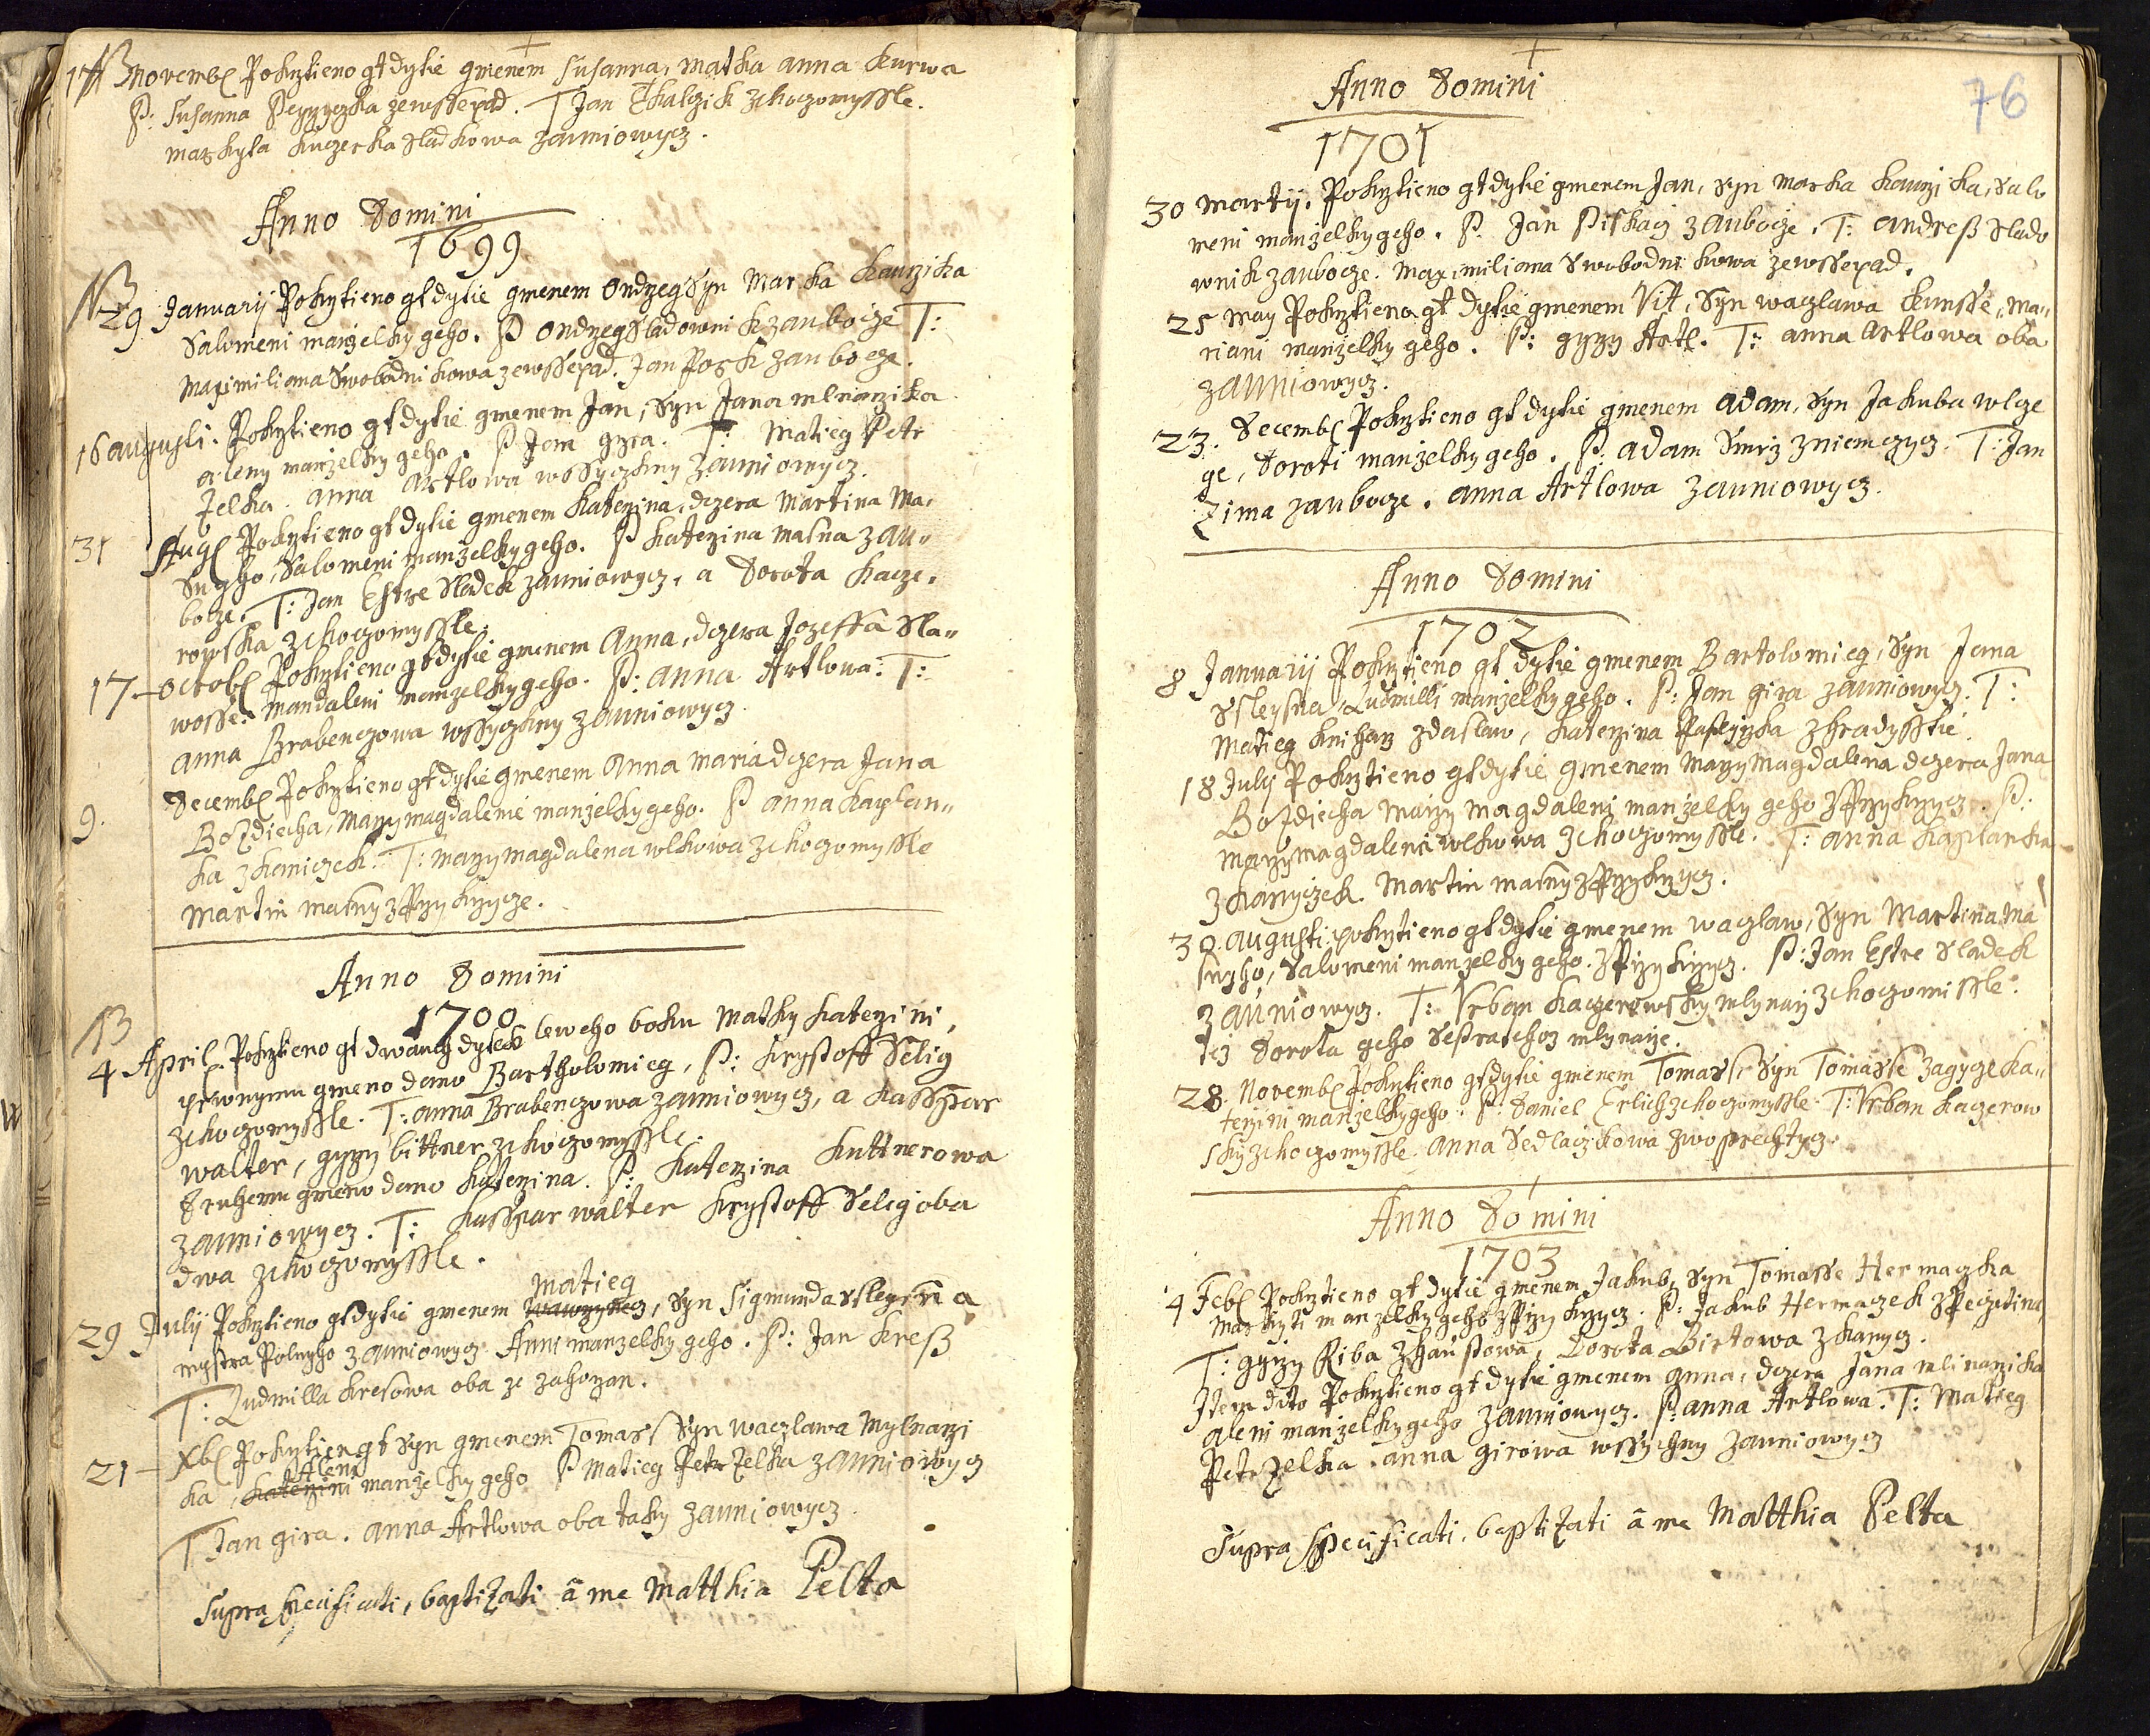 17 NB Novemb Pokrztieno gt dytie gmenem Susanna, matka anna kurwa
P: Susanna Pezyrzka zewssepad. T Jan Ekalczik zchoczomyssle.
markyta kuczerka Sladkowa zauniowycz.
Anno Domini
1699
NB
29 Januarij Pokrztieno gt dytie gmenem Ondrzeg Syn Marka kaurzika
Salomeni manzelky geho. P Ondrzeg Sladownik zaubocze T:
Maximiliana Swobodnikowa zewssepad. Jan Posk zaubocze.
16 augusti. Pokrztieno gt dytie gmenem Jan, Syn Jana mlinarzika
aleny manzelky geho. P Jan gyra. T: Matieg Petr
zelka. anna Artlowa wssyczkny zauniowycz.
31 Aug Pokrztieno gt dytie gmenem katerzina, dczera Martina Ma,
snyho, Salomeni manzelky geho. P katerzina masna zau„
bocze. T: Jan Estre Sladek zauniowycz, a Dorota kacze,
rowska zchoczomyssle.
17 octob Pokrztieno gt dytie gmenem Anna, dczera Jozeffa Sla„
wosse. Mandaleni manzelky geho. P: anna Artlowa: T:
anna Brabenczowa wssyczkny zauniowycz.
9. Decemb Pokrztieno gt dytie gmenem Anna maria dczera Jana
Bozdiecha, Marzymagdalenie manzelky geho. P anna kaplan„
ka zkaniczek. T: marzymagdalena wlkowa zchoczomyssle
Martin masny zPrzykrzycze.
Anno Domini
1700
NB
4 April Pokrztieno gt dwauch dytek lewcho boku Matky katerzini,
prwnymu gmeno dano Bartholomieg, P: krystoff Selig
zchoczomyssle. T: anna Brabenczowa zauniowycz, a kasspar
walter, gyrzy bittner zchoczomyssle.
Druhemu gmeno dano katerzina. P: katerzina kuttnerowa
zauniowycz. T: kasspar walter krystoff Selig oba
dwa zchoczomyssle.
Matieg
29 Julij Pokrztieno gt dytie gmenem wawrzynecz, Syn Sigmunda Slegsna
mystra Polnyho zauniowycz Anni manzelky geho. P: Jan kreß
T: Ludmilla kresowa oba ze zahorzan.
21 Xb Pokrztien gt Syn gmenem Tomass Syn waczlawa Mylnarzi
Aleni
ka, katerzini manzelky geho P Matieg Petrzelka zauniowycz
T Jan gira. anna Artlowa oba taky zauniowycz
Supra specificati, baptizati â me Matthia Pelta
76
Anno Domini
1701
30 Martij. Pokrztieno gt dytie gmenem Jan, Syn marka kaurzika, Salo
meni manzelky geho. P. Jan Piskacz zaubocze. T: andreß Slado
wnik zaubocze. Maximiliana Swobodnikowa zewssepad.
25 May Pokrztieno gt dytie gmenem Vit, Syn waczlawa kunsse, Ma„
riani manzelky geho. P: gyrzy Artl. T: anna Artlowa oba
zauniowycz.
23. Decemb Pokrztieno gt dytie gmenem Adam, Syn Jakuba wlcze
ge, Doroti manzelky geho. P: Adam Smrz zniemczycz. T: Jan
Zima zaubocze. anna Artlowa zauniowycz.
Anno Domini
1702
8 Januarij Pokrztieno gt dytie gmenem Bartolomieg, Syn Jana
Slegsna, Ludmilli manzelky geho. P: Jan gira zauniowycz. T:
Matieg kniharz zdaslaw, katerzina zhradysstie.
18 Julij Pokrztieno gt dytie gmenem marzymagdalena dczera Jana
Bozdiecha marzy magdaleni manzelky geho zPrzykrzycz. P:
Marzymagdalena wlkowa zchoczomyssle. T: anna kaplanka
zkanyczek Martin masny zPrzykrzycz.
30 augusti. pokrztieno gt dytie gmenem waczlaw, Syn Martina Ma
snyho, Salomeni manzelky geho. zPrzykrzycz. P: Jan Estre Sladek
zauniowycz. T: Vrban kaczerowsky mlynarz zchoczomissle.
tez Dorota geho Sestra tehoz mlynarze.
28. Novemb Pokrztieno gt dytie gmenem Tomass Syn Tomasse zagycze ka„
terzini manzelky geho. P: Daniel Erlich zchoczomyssle. T: Vrban kaczerow
sky zchoczomyssle. anna Sedlaczkowa zwoprechtycz
Anno Domini
1703
4 Feb Pokrztieno gt dytie gmenem Jakub, Syn Tomasse Hermaczka
Markyti manzelky geho zPrzykrzycz. P: Jakub Hermaczek zPeczetina,
T: gyrzy Riba zhaustowa, Dorota Birtowa zkanycz.
Item dito Pokrztieno gt dytie gmenem anna, dczera Jana mlinarzika
aleni manzelky geho zauniowycz. P: anna Artlowa. T: Matieg
Petrzelka. anna girowa wssyckny zauniowycz
Supra specificati. baptizati â me Matthia Pelta